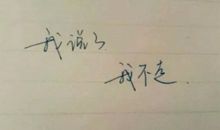 我说了
我不走.